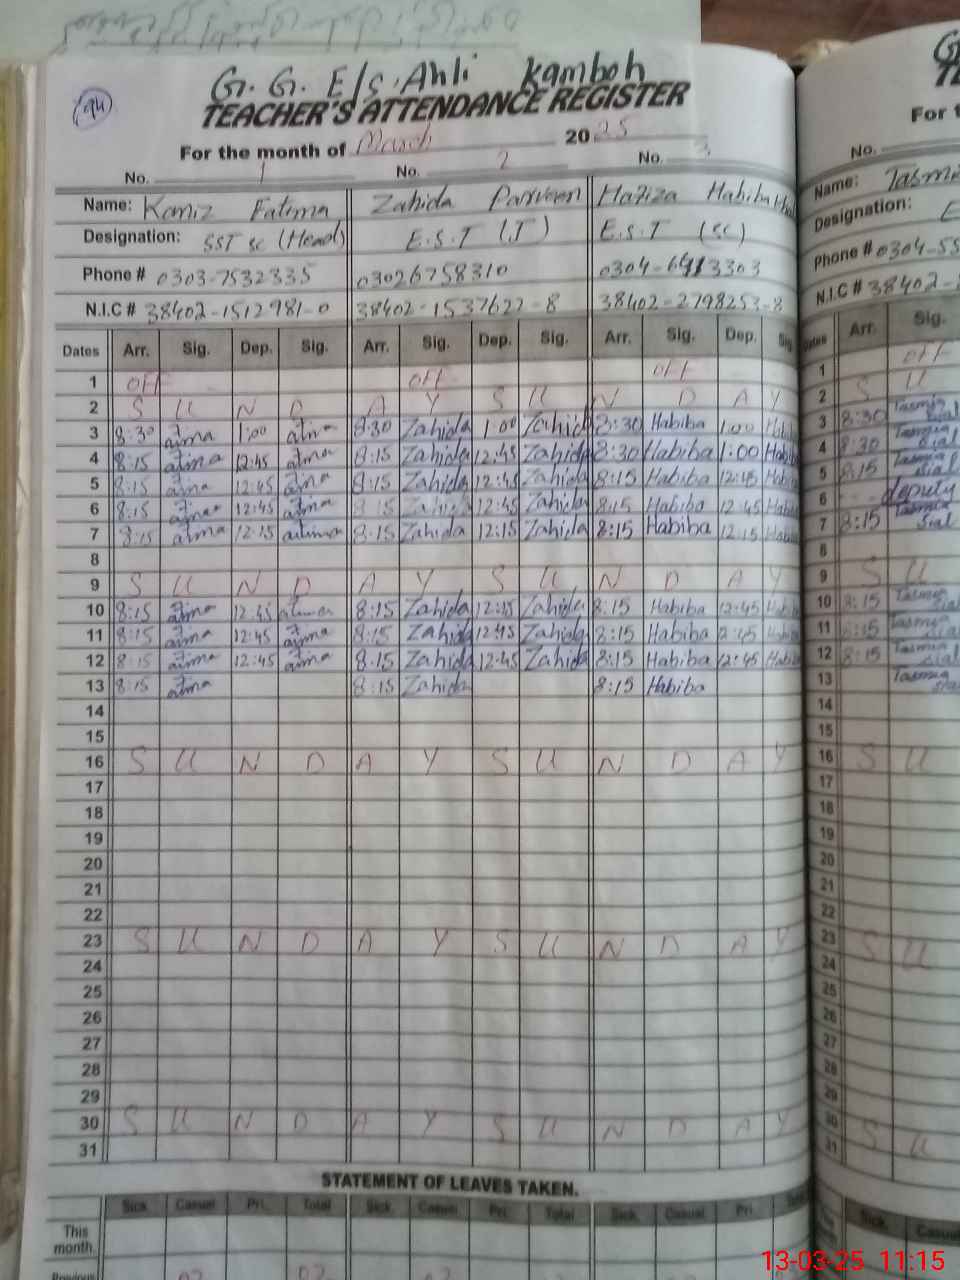 G. G. E/S. Ahli Kamboh
TEACHER'S ATTENDANCE REGISTER
For the month of March 2025
No. 1 No. 2 No. 3
Name: Kaniz Fatima Zahida Parveen Hafiza Habiba
Designation: SST SC (Head) E.S.T (J) E.S.T (SC)
Phone # 0303-7532335 03026758310 0304-6413303
N.I.C # 38402-1512981-0 38402-1537627-8 38402-2798253-8
Dates Arr. Sig. Dep. Sig. Arr. Sig. Dep. Sig. Arr. Sig. Dep. Sig
1 OFF OFF OFF
2 S U N D A Y S U N D A Y
3 8:30 atima 1:00 atima 8:30 Zahida 1:00 Zahida 8:30 Habiba 1:00 Habiba
4 8:15 atima 12:45 atima 8:15 Zahida 12:45 Zahida 8:30 Habiba 1:00 Habiba
5 8:15 atima 12:45 atima 8:15 Zahida 12:45 Zahida 8:15 Habiba 12:45 Habiba
6 8:15 atima 12:45 atima 8:15 Zahida 12:45 Zahida 8:15 Habiba 12:45 Habiba
7 8:15 atima 12:15 atima 8:15 Zahida 12:15 Zahida 8:15 Habiba 12:15 Habiba
8
9 S U N D A Y S U N D A Y
10 8:15 atima 12:45 atima 8:15 Zahida 12:45 Zahida 8:15 Habiba 12:45 Habiba
11 8:15 atima 12:45 atima 8:15 Zahida 12:45 Zahida 8:15 Habiba 2:45 Habiba
12 8:15 atima 12:45 atima 8:15 Zahida 12:45 Zahida 8:15 Habiba 12:45 Habiba
13 8:15 atima 8:15 Zahida 8:15 Habiba
14
15
16 S U N D A Y S U N D A Y
17
18
19
20
21
22
23 S U N D A Y S U N D A Y
24
25
26
27
28
29
30 S U N D A Y S U N D A Y
31
STATEMENT OF LEAVES TAKEN.
Sick Casual Pri. Total Sick. Casual Pri. Total Sick. Casual Pri.
This month.
Previous
G
For t
No.
Name: Tasmi
Designation: E
Phone # 0304-55
N.I.C # 38402-
Dates Arr. Sig.
1 OFF
2 S U
3 8:30 Tasmia Sial
4 8:30 Tasmia Sial
5 8:15 Tasmia Sial
6 deputy
7 8:15 Tasmia Sial
8
9 S U
10 8:15 Tasmia Sial
11 8:15 Tasmia Sial
12 8:15 Tasmia Sial
13 Tasmia Sial
14
15
16 S U
17
18
19
20
21
22
23 S U
24
25
26
27
28
29
30 S U
31
Sick. Casual
13-03-25 11:15